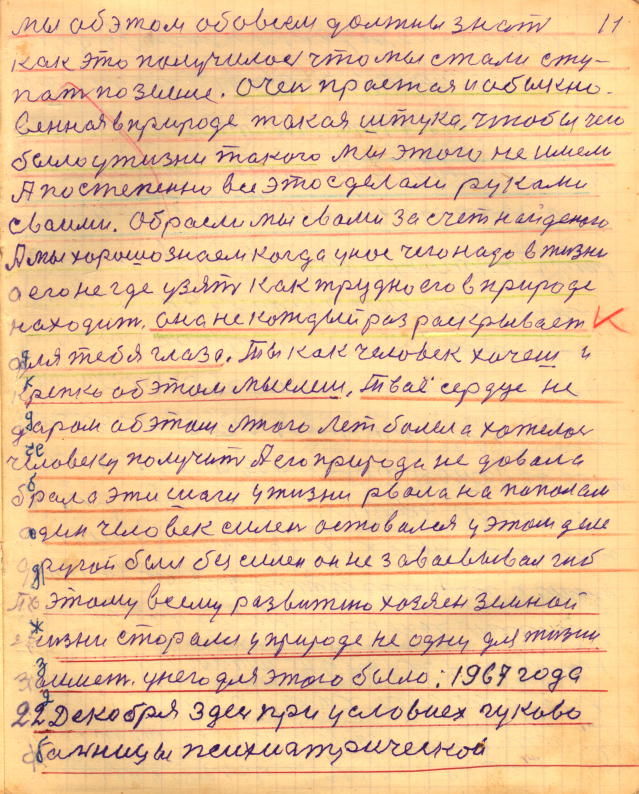 мы об этом обовсем должны знат 11
как это получилос что мы стали сту-
пат по земле. Очен простая и обыкно-
венная в природе такая штука, чтобы чего
было у жизни такого мы этого не имем
А постепенно все это сделали руками
сваими. Обрасли мы свами за счет найденого
А мы хорошо знаем когда у нас чего надо в жизни
а его не где узят как трудно его в природе
находит. она не каждый раз раскрывает К
для тебя глаза. Ты как человек хочеш и
крепко об этом мыслеш, Тваё сердце не
даром об этом много лет болела хотелос
человеку получит А его природа не довала
брала эти шаги у жизни рвала на папалам
один человек силен оставался у этом деле
другой был бессилен он не заваевывал гиб
По этому всему развитию хозяен земной
жизни старался у природе не одну для жизни
у него для этого было: 1967 года
22 Декобря здес при условиех гуково
бальницы психиатрической